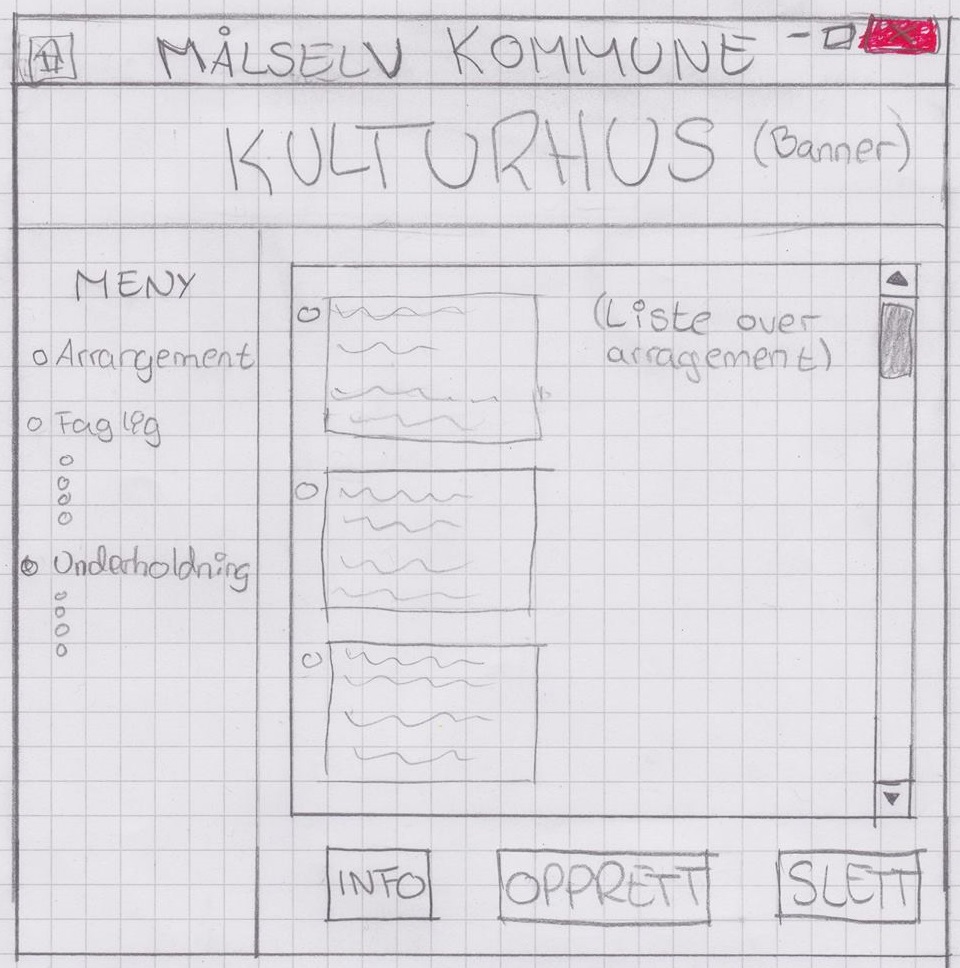 MÅLSELV KOMMUNE
KULTURHUS (Banner)
MENY
Arrangement
Faglig
Underholdning
(Liste over
arragement)
INFO
OPPRETT
SLETT